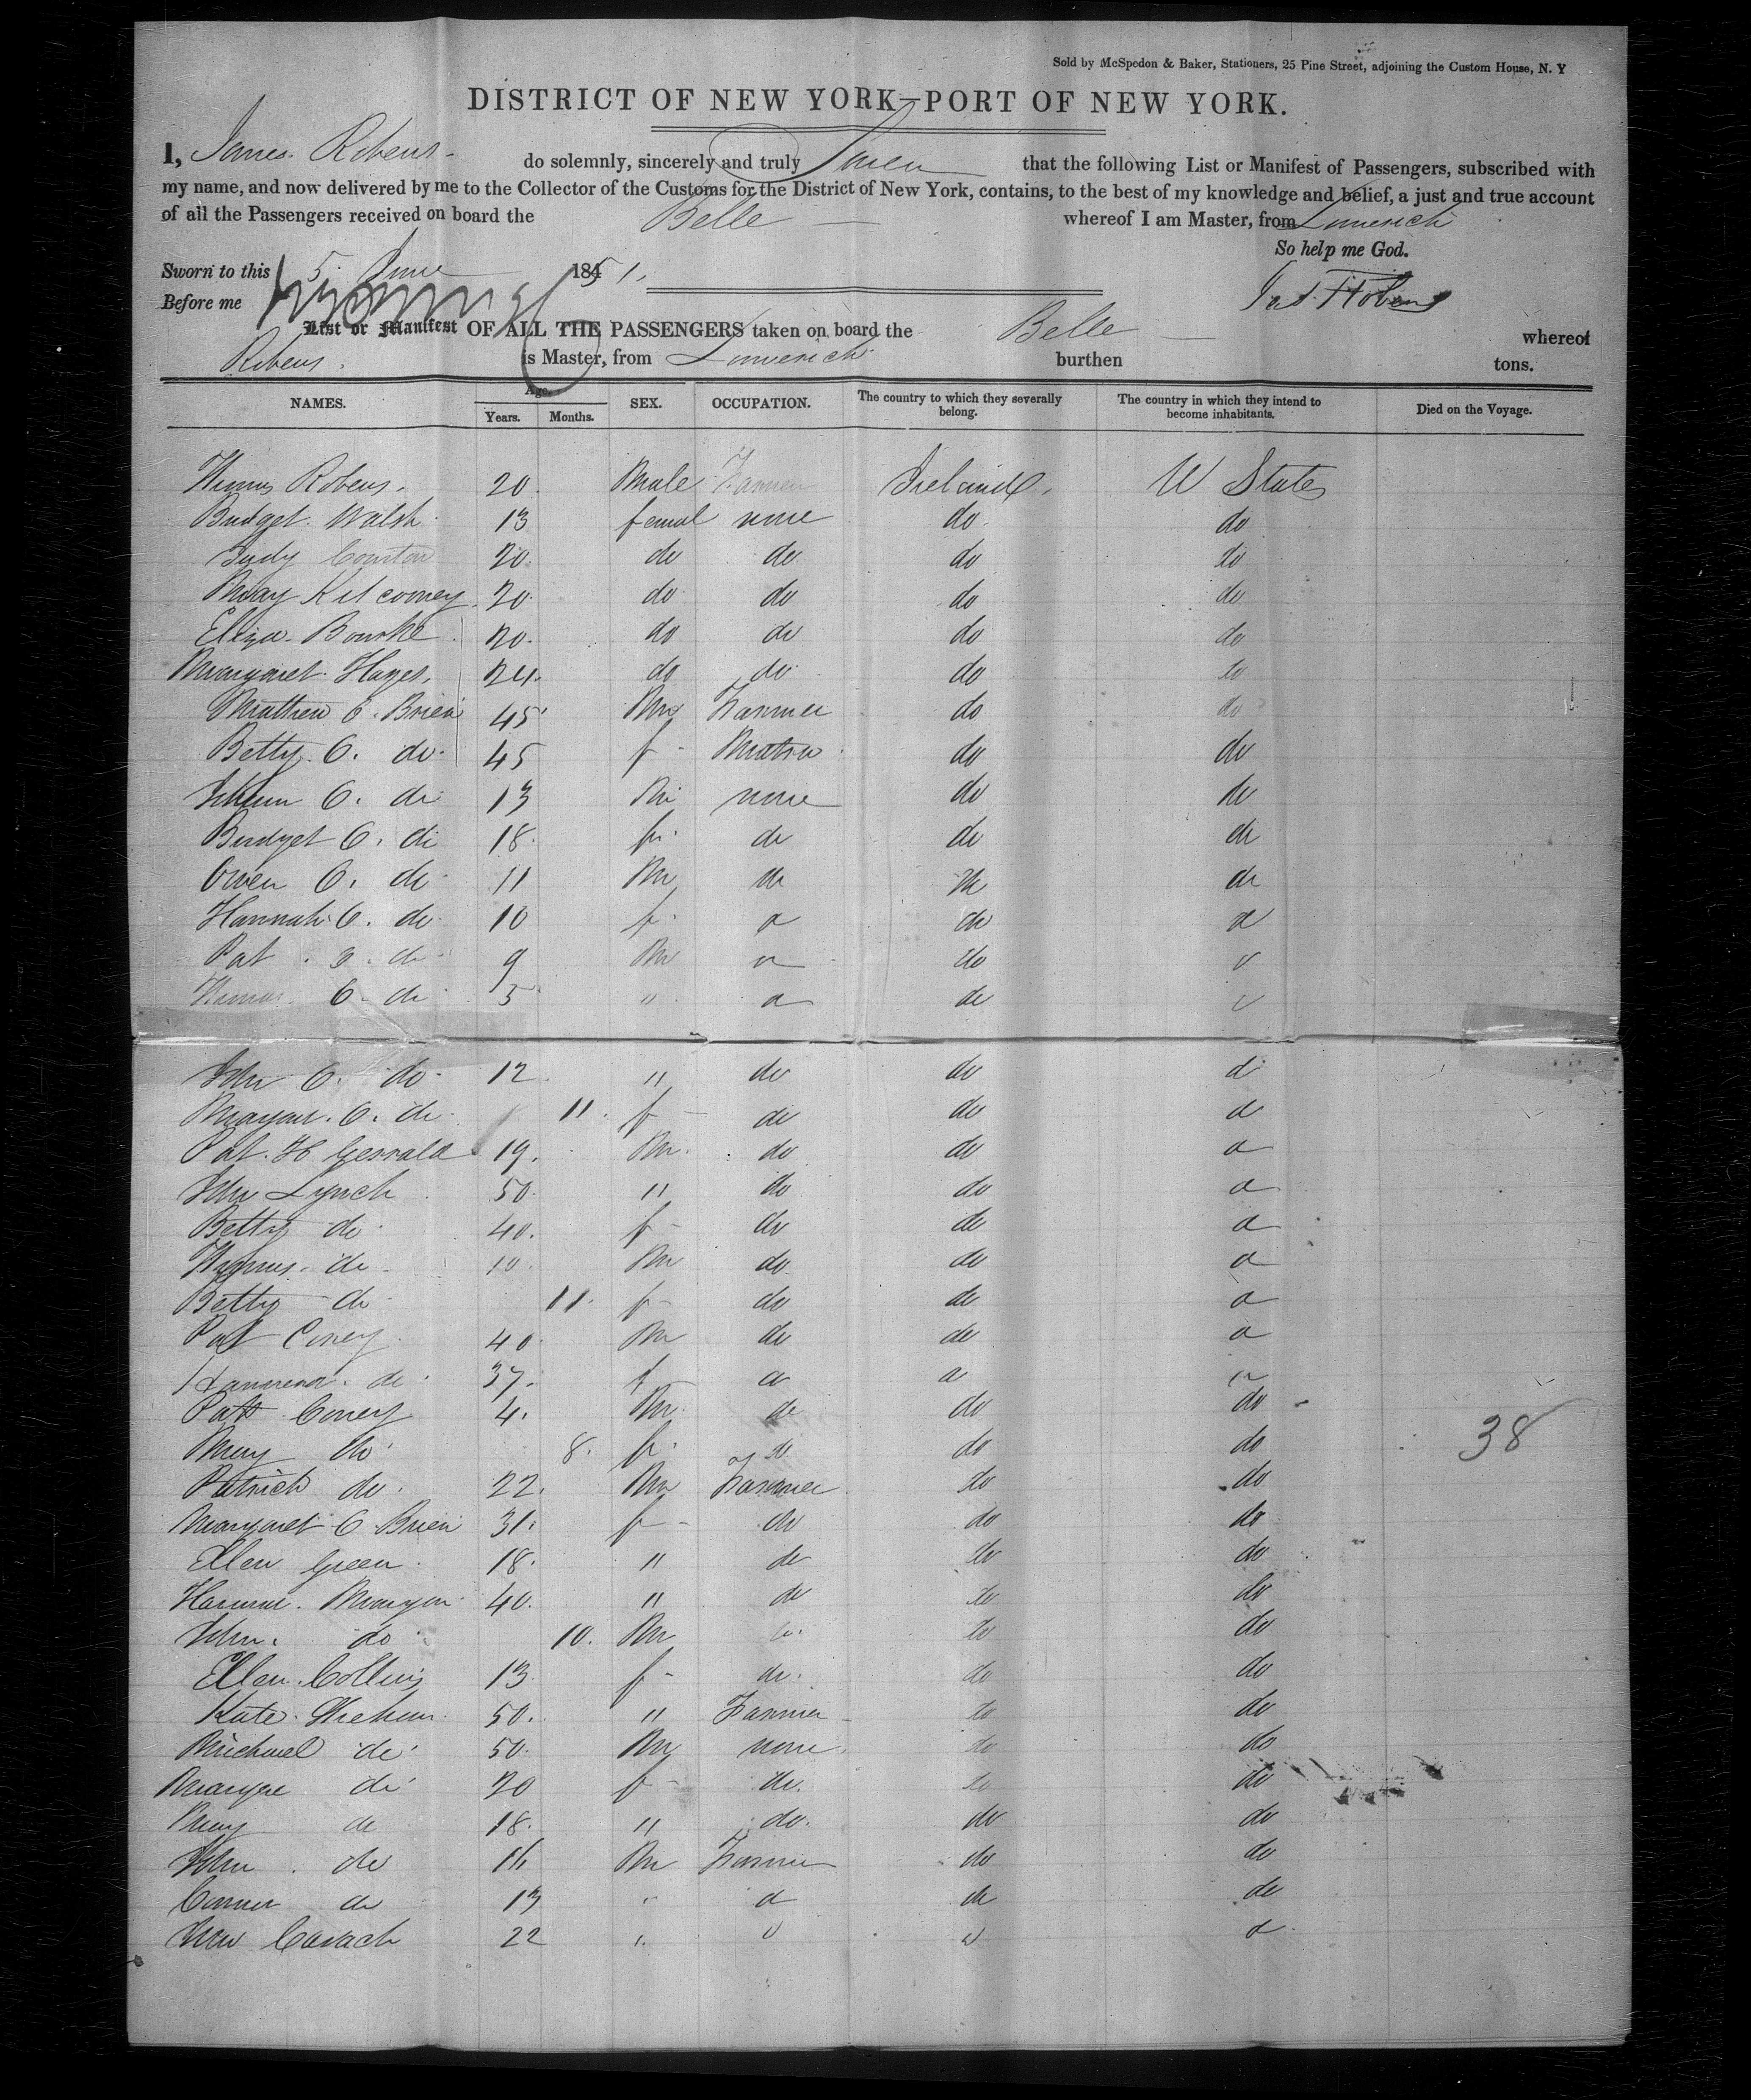 Sold by McSpedon & Baker, Stationers, 25 Pine Street, adjoining the Custom House, N. Y
DISTRICT OF NEW YORK—PORT OF NEW YORK.
I, James Robens do solemnly, sincerely and truly Swear that the following List or Manifest of Passengers, subscribed with
my name, and now delivered by me to the Collector of the Customs for the District of New York, contains, to the best of my knowledge and belief, a just and true account
of all the Passengers received on board the Belle whereof I am Master, from Limerick
So help me God.
Sworn to this 5 June 1851.
Before me
Jas. Robens
List or Manifest OF ALL THE PASSENGERS taken on board the Belle whereof
Robens. is Master, from Limerick burthen tons.
NAMES. Age. SEX. OCCUPATION. The country to which they severally belong. The country in which they intend to become inhabitants. Died on the Voyage.
Years. Months.
Robens. 20 Male Farmer Ireland. U States
Bridget Walsh 13 femal none do do
Judy 20 do do do do
Mary Kilcooney 20 do do do do
Eliza Bourke 20 do do do do
Margaret Hayes. 24 do do do do
Matthew O. Brien 45 M Farmer do do
Betty O. do 45 f do do
O. do 13 M none do do
Bridget O. do 18 f do do do
Owen O. do 11 M do do do
Hannah O. do 10 f do do do
Pat O. do 9 M do do do
O. do 5 " do do do
John O. do 12 " do do do
O. do 11 f do do do
Pat 19 M do do do
John Lynch 50 " do do do
Betty do 40 f do do do
do 10 M do do do
Betty do 11 f do do do
Pat Coney 40 M do do do
do 37 f do do do
Pat Coney 4 M do do do
Mary do 8 f do do do 38
Patrick do 22 M Farmer do do
Margaret O Brien 31 f do do do
Ellen Green 18 " do do do
40 " do do do
John do 10 M do do do
Ellen Collins 13 f do do do
Kate 50 " Farmer do do
Michael do 50 M none do do
do 20 f do do do
Mary do 18 " do do do
John do 16 M Farmer do do
do 13 " do do do
22 " do do do